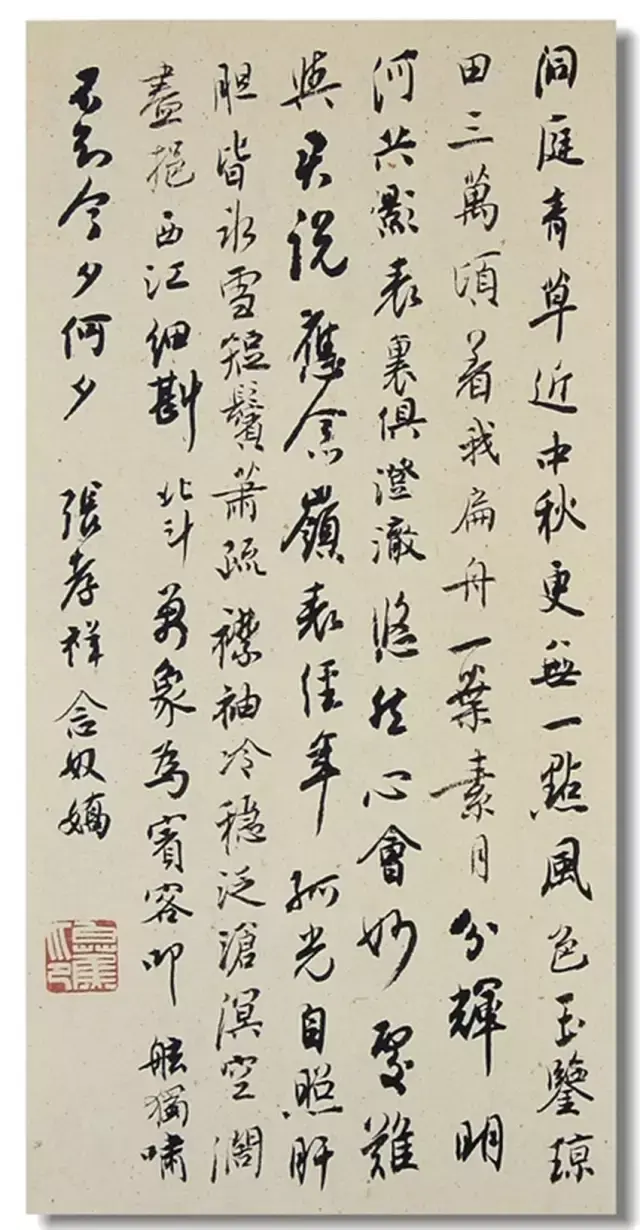 洞庭青草近中秋更無一點風色玉鑒琼
田三萬頃着我扁舟一葉素月分輝明
河共影表裏俱澄澈悠然心會妙處難
與君説應念嶺表經年孤光自照肝
胆皆冰雪短鬢蕭疏襟袖冷穩泛滄溟空闊
盡挹西江細斟北斗萬象為賓客叩舷獨嘯
不知今夕何夕 張孝祥念奴嬌